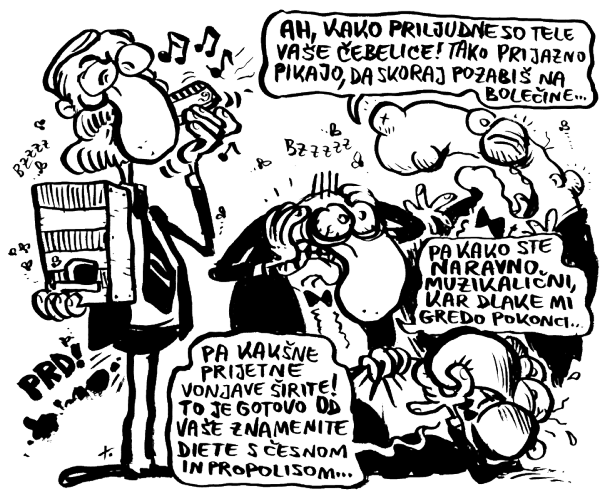 AH, KAKO PRILJUDNE SO TELE
VAŠE ČEBELICE! TAKO PRIJAZNO
PIKAJO, DA SKORAJ POZABIŠ NA
BOLEČINE...
BZZZZ
BZZZZZ
PA KAKO STE
NARAVNO
MUZIKALIČNI,
KAR DLAKE MI
GREDO POKONCI...
PRD!
PA KAKŠNE
PRIJETNE
VONJAVE ŠIRITE!
TO JE GOTOVO OD
VAŠE ZNAMENITE
DIETE S ČESNOM
IN PROPOLISOM...